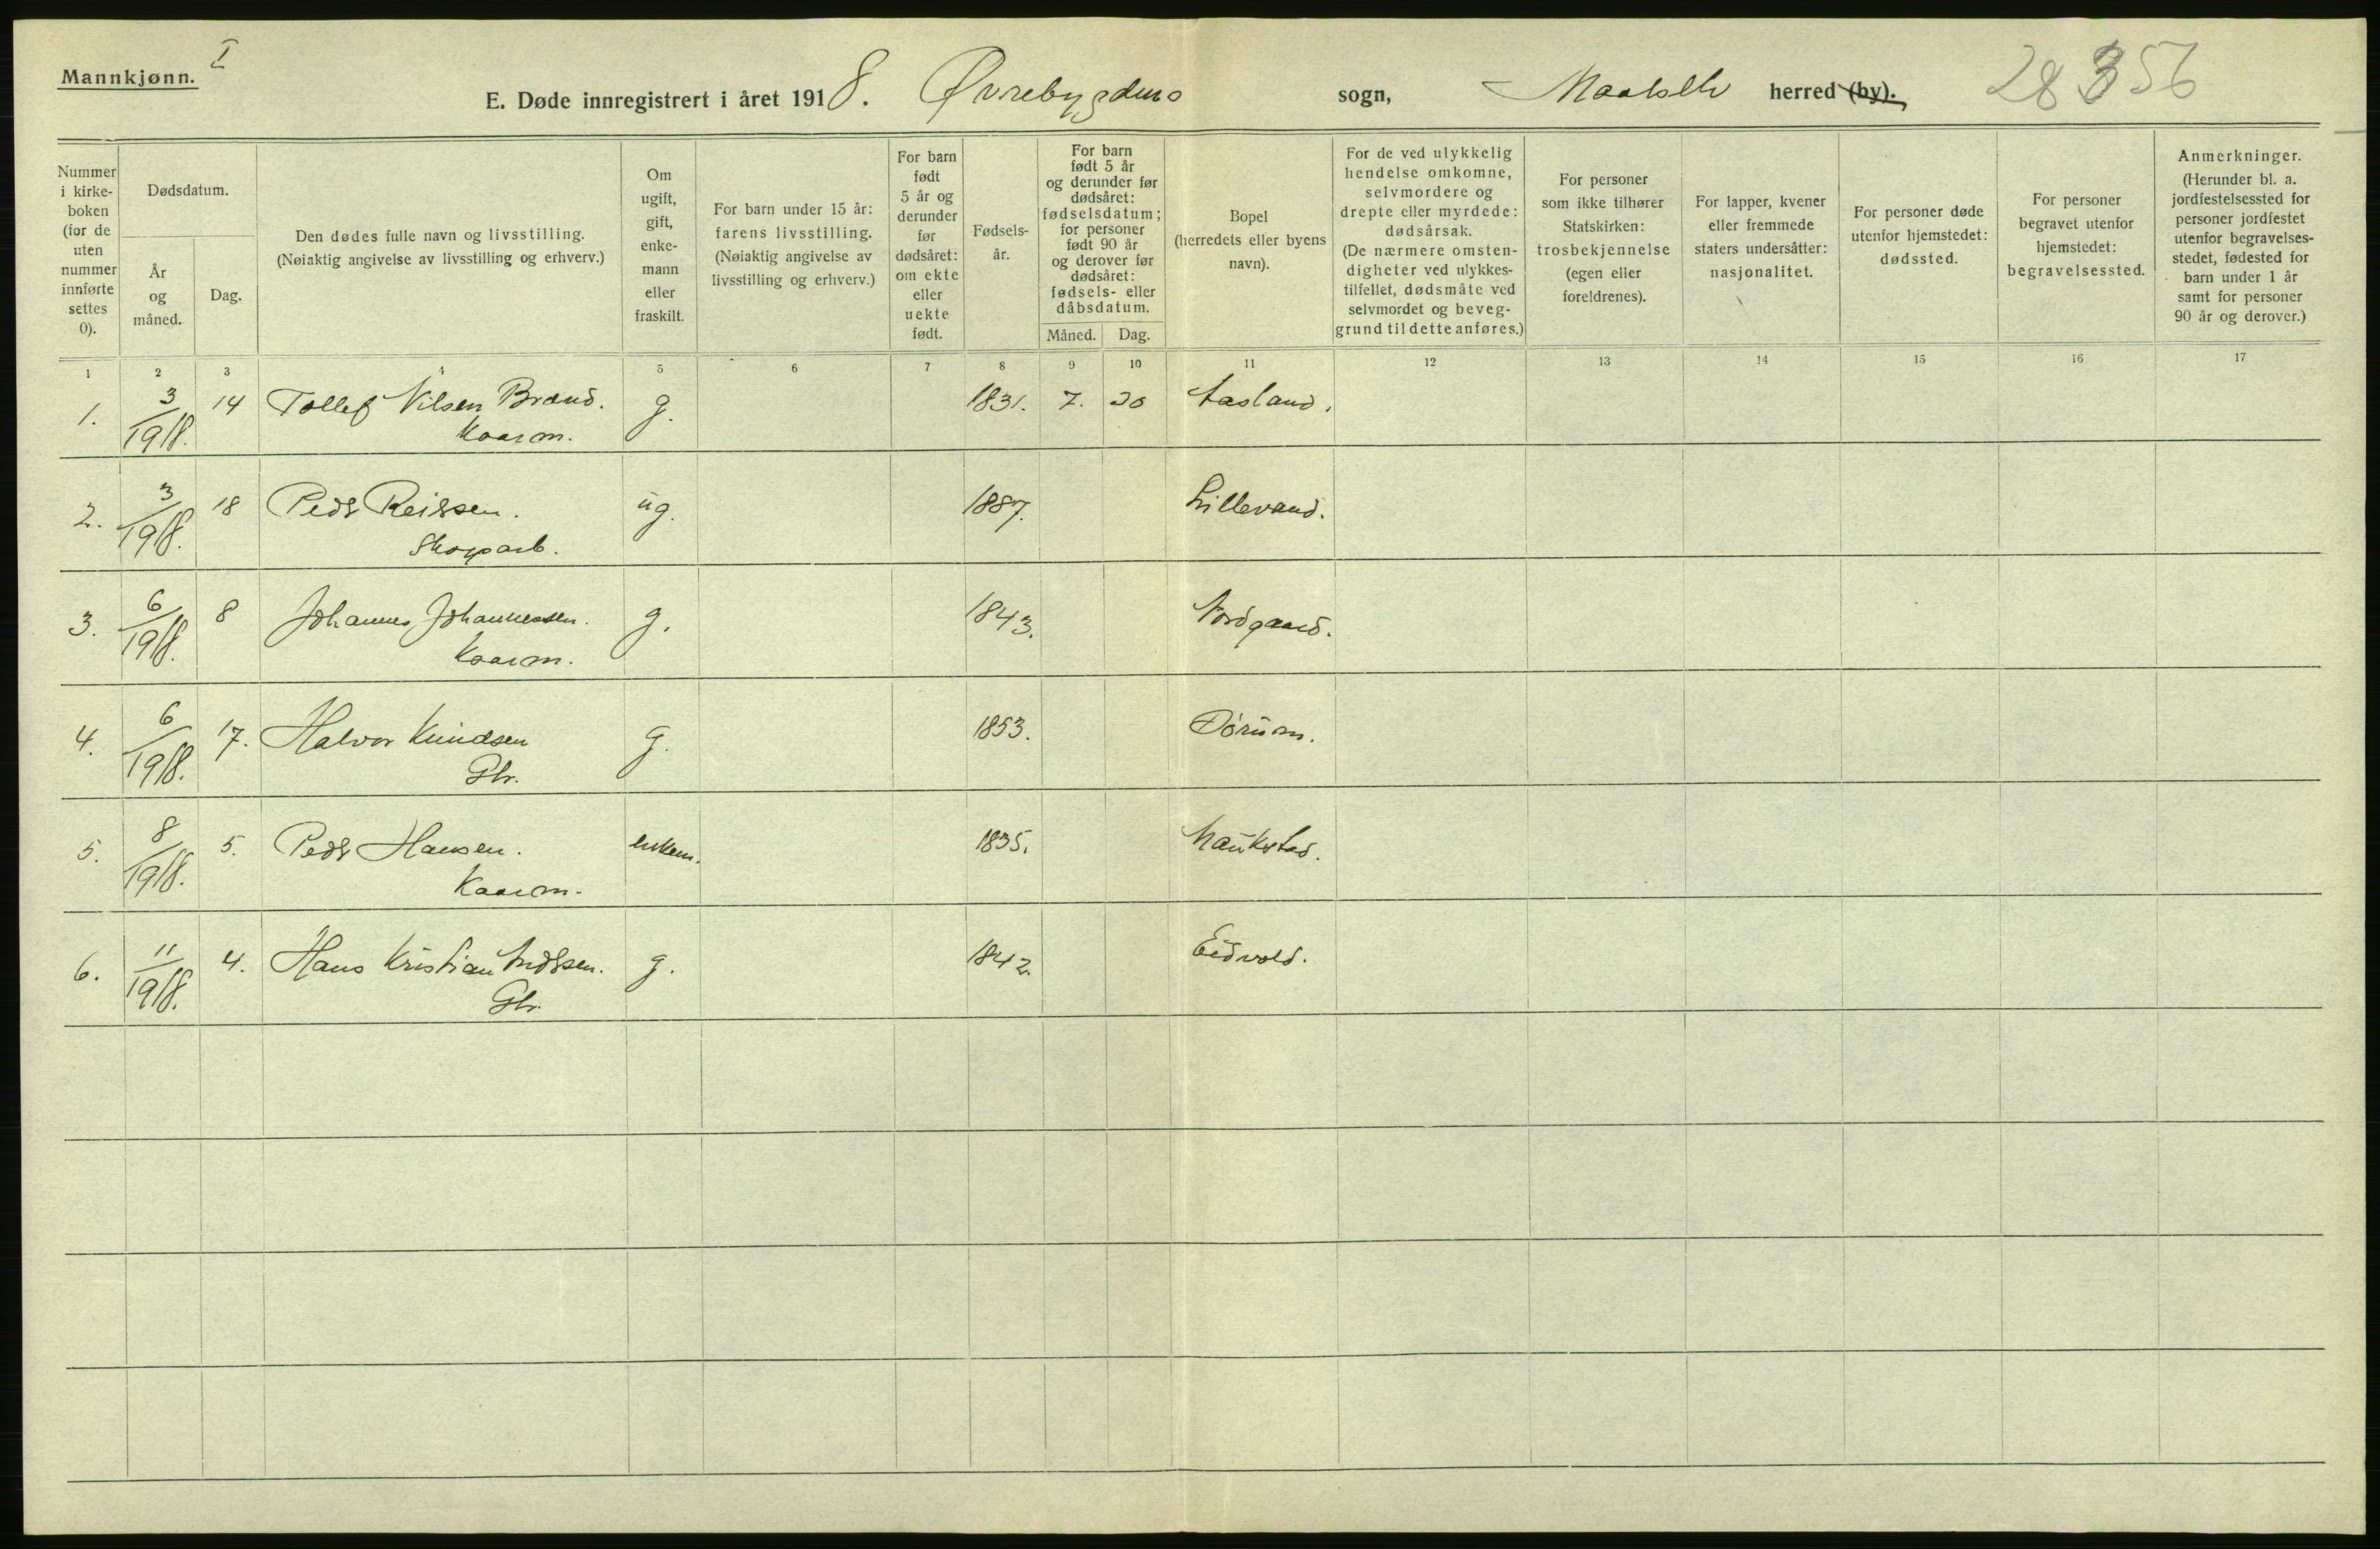 Mannkjønn. I
E. Døde innregistrert i året 1918. Øvrebygdens sogn, Maalselv herred (by). 28 356
Nummer i kirke-boken (for de uten nummer innførte settes 0).
Dødsdatum.
År og måned.
Dag.
Den dødes fulle navn og livsstilling. (Nøiaktig angivelse av livsstilling og erhverv.)
Om ugift, gift, enke-mann eller fraskilt.
For barn under 15 år: farens livsstilling. (Nøiaktig angivelse av livsstilling og erhverv.)
For barn født 5 år og derunder før dødsåret: om ekte eller uekte født.
Fødsels-år.
For barn født 5 år og derunder før dødsåret: fødselsdatum; for personer født 90 år og derover før dødsåret: fødsels- eller dåbsdatum.
Måned. Dag.
Bopel (herredets eller byens navn).
For de ved ulykkelig hendelse omkomne, selvmordere og drepte eller myrdede: dødsårsak. (De nærmere omsten-digheter ved ulykkes-tilfellet, dødsmåte ved selvmordet og beveg-grund til dette anføres.)
For personer som ikke tilhører Statskirken: trosbekjennelse (egen eller foreldrenes).
For lapper, kvener eller fremmede staters undersåtter: nasjonalitet.
For personer døde utenfor hjemstedet: dødssted.
For personer begravet utenfor hjemstedet: begravelsessted.
Anmerkninger. (Herunder bl. a. jordfestelsessted for personer jordfestet utenfor begravelses-stedet, fødested for barn under 1 år samt for personer 90 år og derover.)
1 2 3 4 5 6 7 8 9 10 11 12 13 14 15 16 17
1. 3/1918. 14 Tollef Nilsen Brand. g. 1831. 7. 30 Aasland.
Kaarm.
2. 3/1918. 18 Peder Reiersen. ug. 1887. Lillevand.
Skogarb.
3. 6/1918. 8 Johannes Johannessen. g. 1843. Nordgaard.
Kaarm.
4. 6/1918. 17. Halvor Knudsen g. 1853. Dørum.
Gbr.
5. 8/1918. 5. Peder Hansen. enkem. 1835. Maukstad.
Kaarm.
6. 11/1918. 4. Hans Kristian Anderssen. g. 1842. Eidvold.
Gbr.